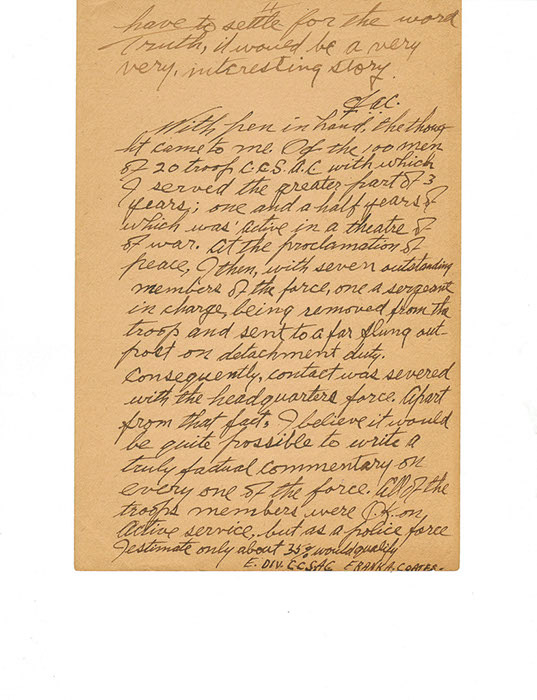 have to settle for the word
Truth, it would be a very
very, interesting story.
F.a.c.
With pen in hand, the thoug
ht came to me. Of the 100 men
of 20 troop C.C.S.A.C with which
I served the greater part of 3
years; one and a half years of
which was active in a theatre of
of war. At the proclamation of
peace, I then, with seven outstanding
members of the force, one a sergeant
in charge, being removed from the
troop and sent to a far flung out-
post on detachment duty.
Consequently, contact was severed
with the headquarters force. Apart
from that fact, I believe it would
be quite possible to write a
truly factual commentary on
every one of the force. All of the
troops members were O.K. on
Active service, but as a police force
I estimate only about 35% would qualify
E. DIV. C.C.SAC FRANK A. COATES.